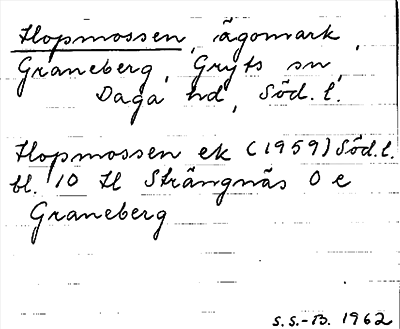 Hopmossen, ägomark,
Graneberg, Gryts sn,
Daga hd, Söd. l.
Hopmossen ek (1959) Söd. l.
bl. 10 H Strängnäs 0 e
Graneberg
S.S.-B. 1962